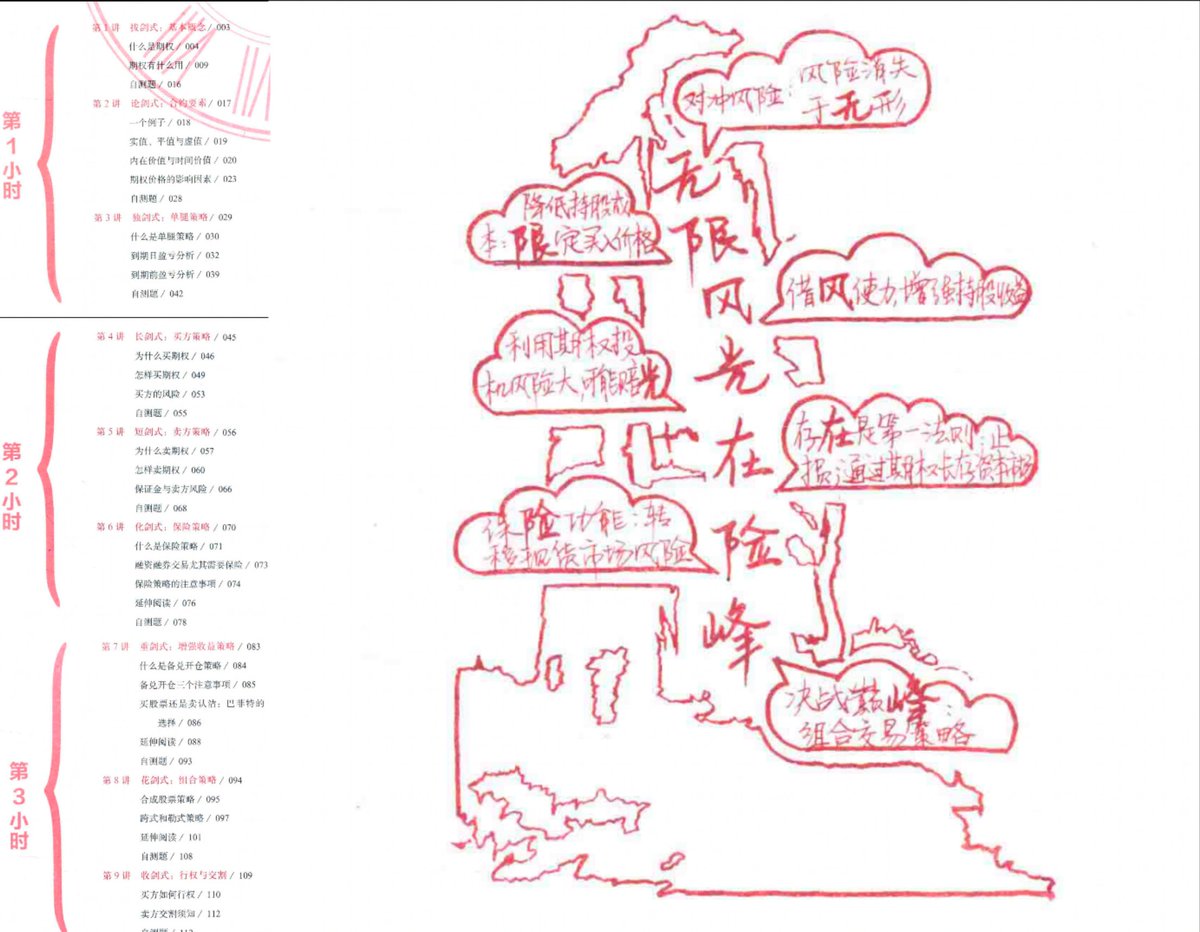 第1小时
第1讲 拔剑式：基本概念 / 003
什么是期权 / 004
期权有什么用 / 009
自测题 / 016
第2讲 论剑式：合约要素 / 017
一个例子 / 018
实值、平值与虚值 / 019
内在价值与时间价值 / 020
期权价格的影响因素 / 023
自测题 / 028
第3讲 独剑式：单腿策略 / 029
什么是单腿策略 / 030
到期日盈亏分析 / 032
到期前盈亏分析 / 039
自测题 / 042
第2小时
第4讲 长剑式：买方策略 / 045
为什么买期权 / 046
怎样买期权 / 049
买方的风险 / 053
自测题 / 055
第5讲 短剑式：卖方策略 / 056
为什么卖期权 / 057
怎样卖期权 / 060
保证金与卖方风险 / 066
自测题 / 068
第6讲 化剑式：保险策略 / 070
什么是保险策略 / 071
融资融券交易尤其需要保险 / 073
保险策略的注意事项 / 074
延伸阅读 / 076
自测题 / 078
第3小时
第7讲 重剑式：增强收益策略 / 083
什么是备兑开仓策略 / 084
备兑开仓三个注意事项 / 085
买股票还是卖认沽：巴菲特的
选择 / 086
延伸阅读 / 088
自测题 / 093
第8讲 花剑式：组合策略 / 094
合成股票策略 / 095
跨式和勒式策略 / 097
延伸阅读 / 101
自测题 / 108
第9讲 收剑式：行权与交割 / 109
买方如何行权 / 110
卖方交割须知 / 112
对冲风险：风险消失
于无形
无
降低持股成
本：限定买入价格
限
风
借风使力，增强持股收益
利用期权投
机风险大，可能赔光
光
在
存在是第一法则：止
损，通过期权长存资本市场
保险功能：转
移现货市场风险
险
峰
决战巅峰：
组合交易策略